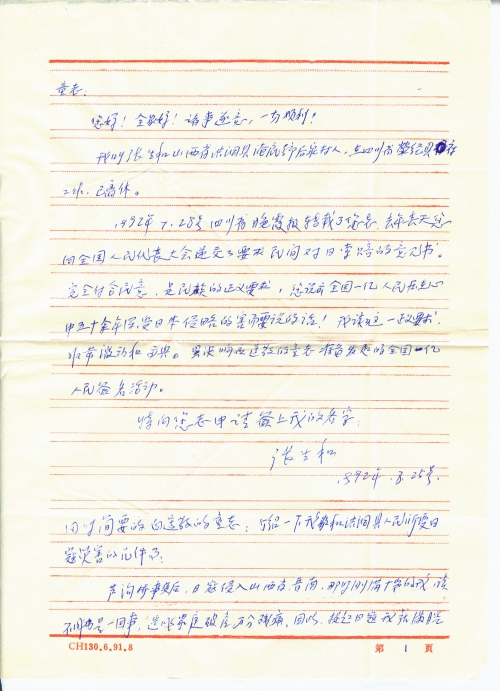 童老:
您好! 全家好! 诸事遂意,一切顺利!
我叫张生和山西省洪洞县 人,在四川省荥经县
工作,已离休。
1992年7.28号四川省晚霞报转载了您
向全国人民代表大会递交了要求民间对日索赔的意见书。
完全符合民意,是民族的正义要求,您说出全国一亿人民在心
中五十余年深受日本侵略的害而要说的话! 我读这一正义要求
非常激动和 。坚决响应尊敬的童老准备发起的全国一亿
人民签名活动。
特向您老申请签上我的名字:
张生和
1992年.8.25号.
同时简要的向尊敬的童老:介绍一下我家和洪洞县人民所受日
寇灾害的几件事:
芦沟桥事变后,日寇侵入山西省晋南,那时刚满十岁的我,
不 是一回事, 家庭破产万分残痛。因此,提起日寇我就满腔
CH130.6.91.8
第 1 页